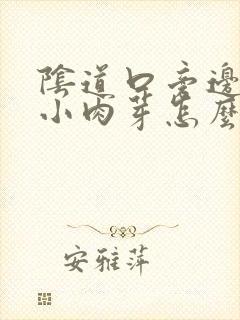 陰道口旁邊
小肉芽怎麼
安雅萍